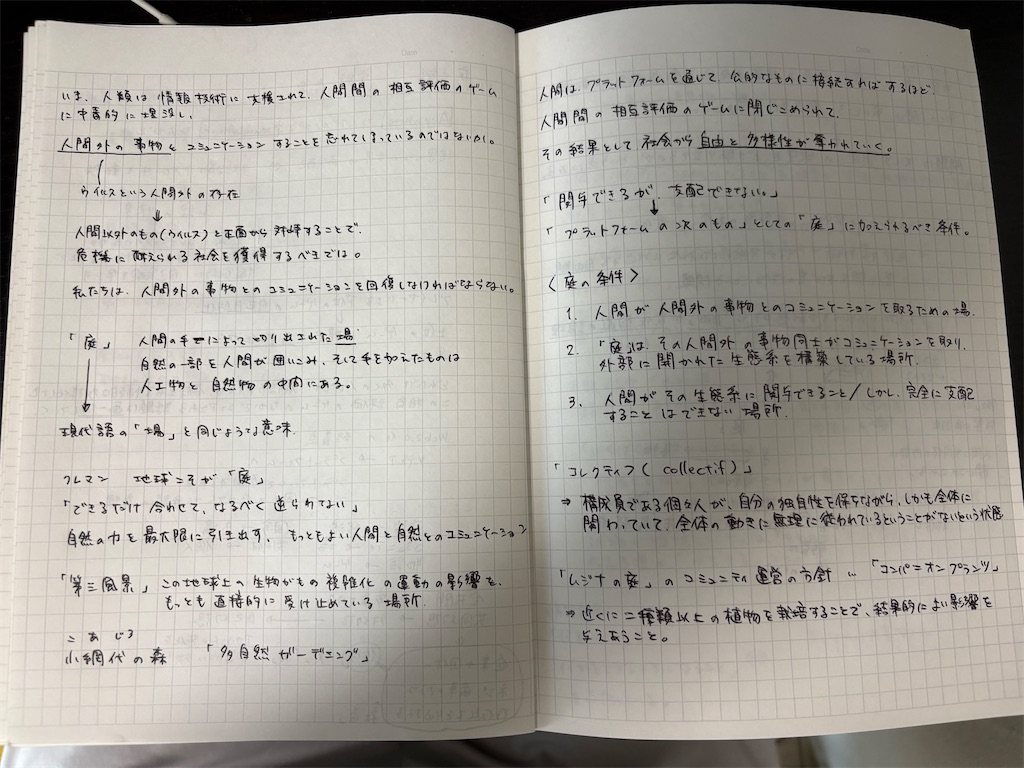 いま、人類は情報技術に支援されて、人間間の相互評価のゲーム
に中毒的に埋没し、
人間外の事物とコミュニケーションすることを忘れてしまっているのではないか。
ウイルスという人間外の存在
↓
人間以外のもの(ウイルス)と正面から対峙することで、
危機に耐えられる社会を獲得するべきでは。
私たちは、人間外の事物とのコミュニケーションを回復しなければならない。
「庭」 人間の手によって切り出された場
自然の一部を人間が囲いこみ、そして手を加えたものは
人工物と自然物の中間にある。
↓
現代語の「場」と同じような意味.
クレマン 地球こそが「庭」
「できるだけ合わせて、なるべく逆らわない」
自然の力を最大限に引き出す、もっともよい人間と自然とのコミュニケーション
「第三風景」この地球上の生物がもつ複雑化の運動の影響を、
もっとも直接的に受け止めている場所.
こあじろ
小網代の森 「多自然ガーデニング」
Date
人間は、プラットフォームを通じて、公的なものに接続すればするほど、
人間間の相互評価のゲームに閉じこめられて、
その結果として社会から自由と多様性が奪われていく。
「関与できるが、支配できない。」
↓
「プラットフォームの次のもの」としての「庭」に加えられるべき条件。
〈庭の条件〉
1. 人間が人間外の事物とのコミュニケーションを取るための場.
2. 「庭」は、その人間外の事物同士がコミュニケーションを取り、
外部に開かれた生態系を構築している場所.
3. 人間がその生態系に関与できること/しかし、完全に支配
することはできない場所.
「コレクティフ(collectif)」
⇒ 構成員である個々人が、自分の独自性を保ちながら、しかも全体に
関わっていて、全体の動きに無理に従われているということがないという状態
「ムジナの庭」のコミュニティ運営の方針 … 「コンパニオンプランツ」
⇒ 近くに二種類以上の植物を栽培することで、結果的によい影響を
与えあうこと。